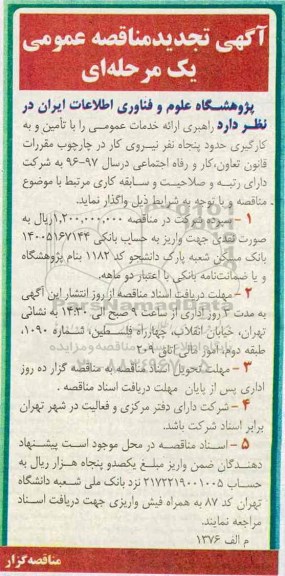 آگهی تجدیدمناقصه عمومی
یک مرحله‌ای
پژوهشگاه علوم و فناوری اطلاعات ایران در
نظر دارد راهبری ارائه خدمات عمومی را با تأمین و به
کارگیری حدود پنجاه نفر نیروی کار در چارچوب مقررات
قانون تعاون،کار و رفاه اجتماعی درسال ۹۷-۹۶ به شرکت
دارای رتبه و صلاحیت و سابقه کاری مرتبط با موضوع
مناقصه و با توجه به شرایط ذیل واگذار نماید.
۱ - سپرده شرکت در مناقصه ۱,۲۰۰,۰۰۰,۰۰۰ریال به
صورت نقدی جهت واریز به حساب بانکی ۱۴۰۰۵۱۶۷۱۴۴
بانک مسکن شعبه پارک دانشجو کد ۱۱۸۲ بنام پژوهشگاه
و یا ضمانت‌نامه بانکی با اعتبار دو ماهه.
۲ - مهلت دریافت اسناد مناقصه از روز انتشار این آگهی
به مدت روز اداری از ساعت ۹ صبح الی ۱۴:۳۰ به نشانی
تهران، خیابان انقلاب، چهارراه فلسطین، شماره ۱۰۹۰،
طبقه دوم، امور مالی اتاق ۲۰۹
۳ - مهلت تحویل اسناد مناقصه به مناقصه گزار ده روز
اداری پس از پایان مهلت دریافت اسناد مناقصه .
۴ - شرکت دارای دفتر مرکزی و فعالیت در شهر تهران
برابر اسناد شرکت باشد.
۵ - اسناد مناقصه در محل موجود است پیشنهاد
دهندگان ضمن واریز مبلغ یکصدو پنجاه هزار ریال به
حساب ۲۱۷۲۲۱۹۰۰۱۰۰۵ نزد بانک ملی شعبه دانشگاه
تهران کد ۸۷ به همراه فیش واریزی جهت دریافت اسناد
مراجعه نمایند.
م الف ۱۳۷۶
مناقصه‌گزار